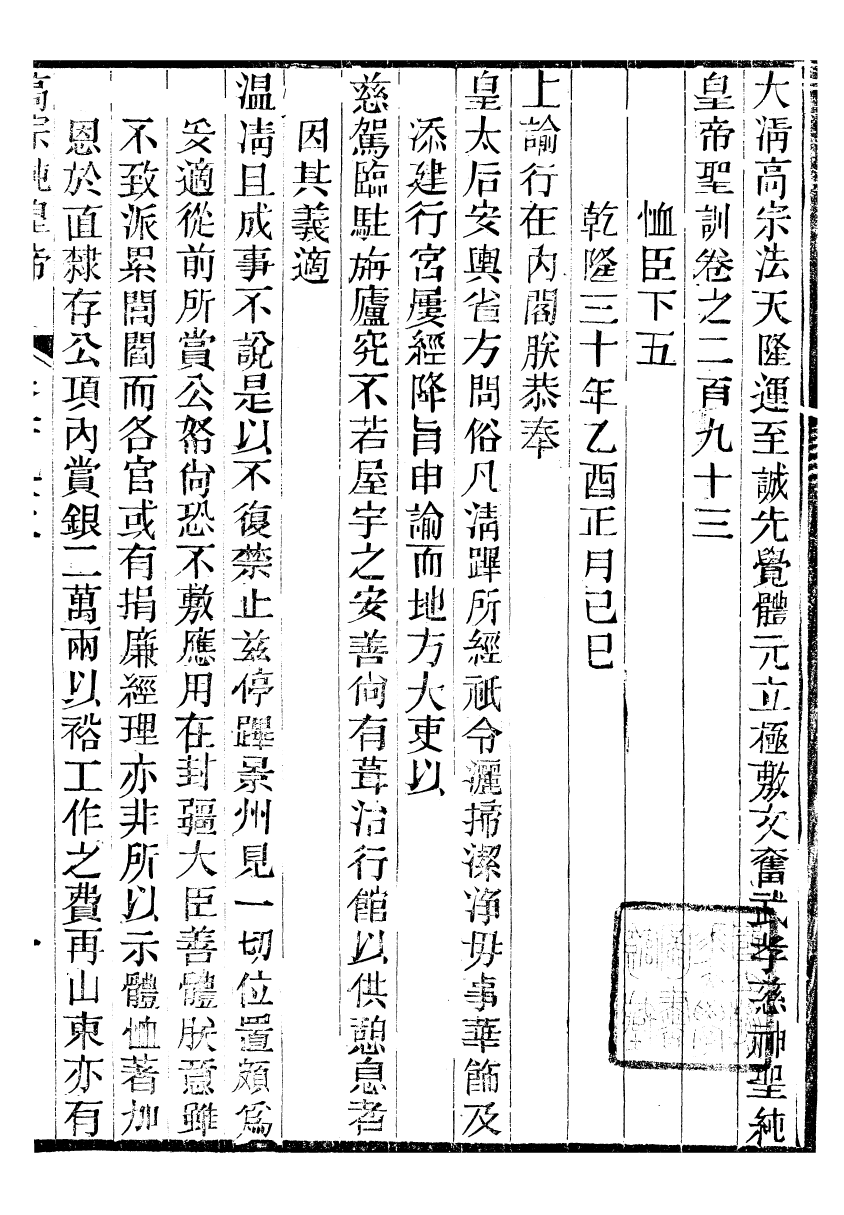 大清高宗法天隆運至誠先覺體元立極敷文奮武孝慈神聖純
皇帝聖訓卷之二百九十三
恤臣下五
乾隆三十年乙酉正月己巳
上諭行在內閣朕恭奉
皇太后安輿省方問俗凡清蹕所經祇令灑掃潔淨毋事華飾及
添建行宮屢經降旨申諭而地方大吏以
慈駕臨駐旃廬究不若屋宇之安善尙有葺治行館以供憩息者
因其義適
温凊且成事不說是以不復禁止茲停蹕景州見一切位置頗爲
妥適從前所賞公帑尙恐不敷應用在封疆大臣善體朕意雖
不致派累閭閻而各官或有捐廉經理亦非所以示體恤著加
恩於直隸存公項內賞銀二萬兩以裕工作之費再山東亦有
高宗純皇帝